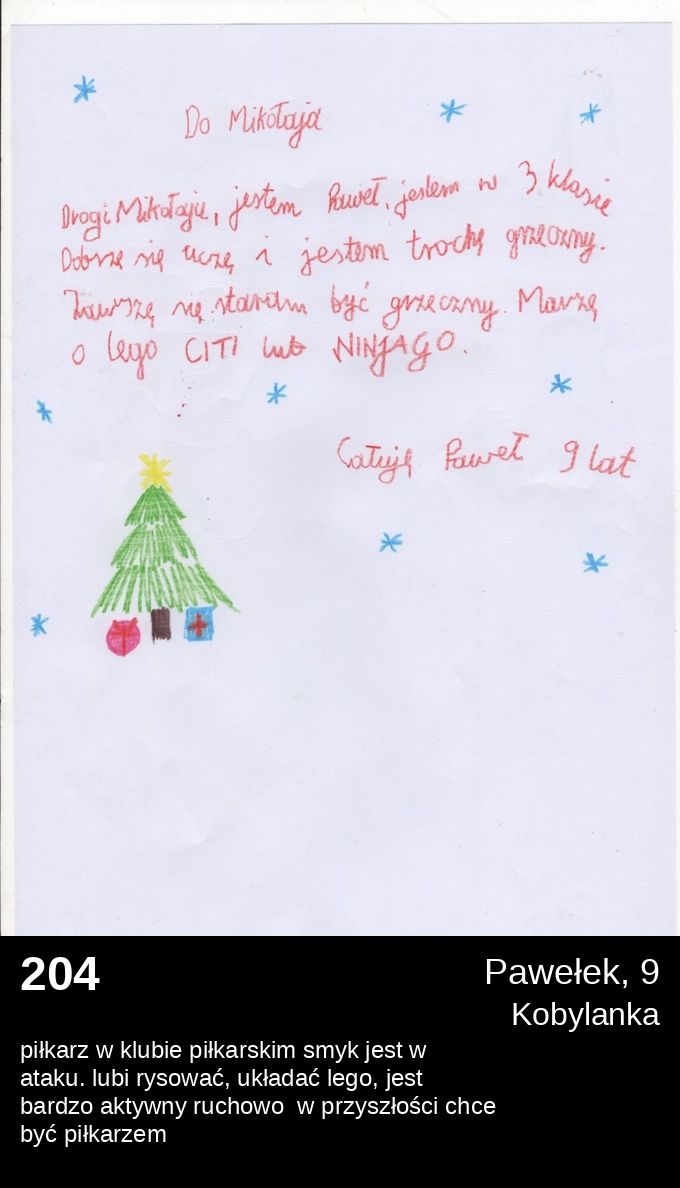 Do Mikołaja
Drogi Mikołaju, jestem Paweł, jestem w 3 klasie
Dobrze się uczę i jestem trochę grzeczny.
Zawszę się staram być grzeczny. Marzę
o lego CITI lub NINJAGO.
Całuję Paweł 9 lat
204
Pawełek, 9
Kobylanka
piłkarz w klubie piłkarskim smyk jest w
ataku. lubi rysować, układać lego, jest
bardzo aktywny ruchowo w przyszłości chce
być piłkarzem